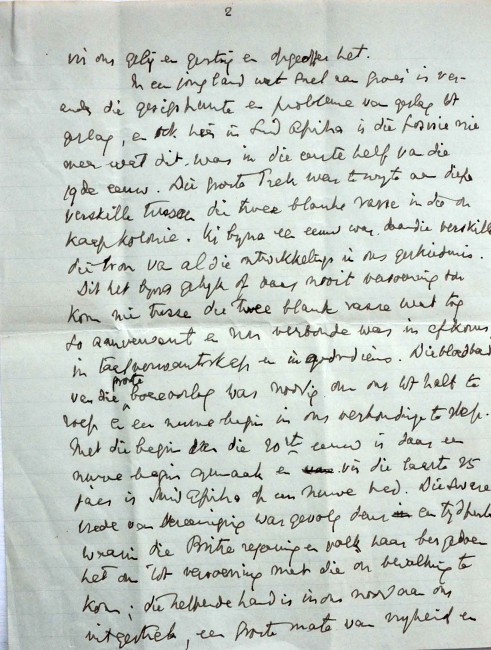 2
vir ons gely en gestry en opgeoffer het.
In en jong land wat snel aan groei is ver-
ander die gesigspunte en probleme van geslag tot
geslag, en ook hier in Suid Afrika is die posisie nie
meer wat dit was in die eerste helft van die
19de eeuw. Die groote Trek was te wyte aan diepe
verskille tussen die twee blanke rasse in die
Kaapkolonie. Vir byna een eeuw was daardie verskille
die bron van al die ontwikkelings in ons geskiedenis.
Dit het byna gelyk of daar nooit versoening sou
kom nie tussen die twee blank rasse wat tog
so aanverwant en nou verbonde was in afkoms
in taalverwantskap en in godsdiens. Die bloedbad
van die groote boereoorlog was noodig om ons tot halt te
roep en en nuwe begin in ons verhoudinge te skep.
Met die begin van die 20ste eeuw is daar en
nuwe begin gemaak en vir die laaste 25
jaar is Suid Afrika op en nuwe weg. Die
vrede van Vereeniging was gevolg deur en tydperk
waarin die Britse regering en volk haar bes gedoen
het om tot versoening met die bevolking te
kom; die helpende hand is in ons nood aan ons
uitgestrek, een groote mate van vryheid en